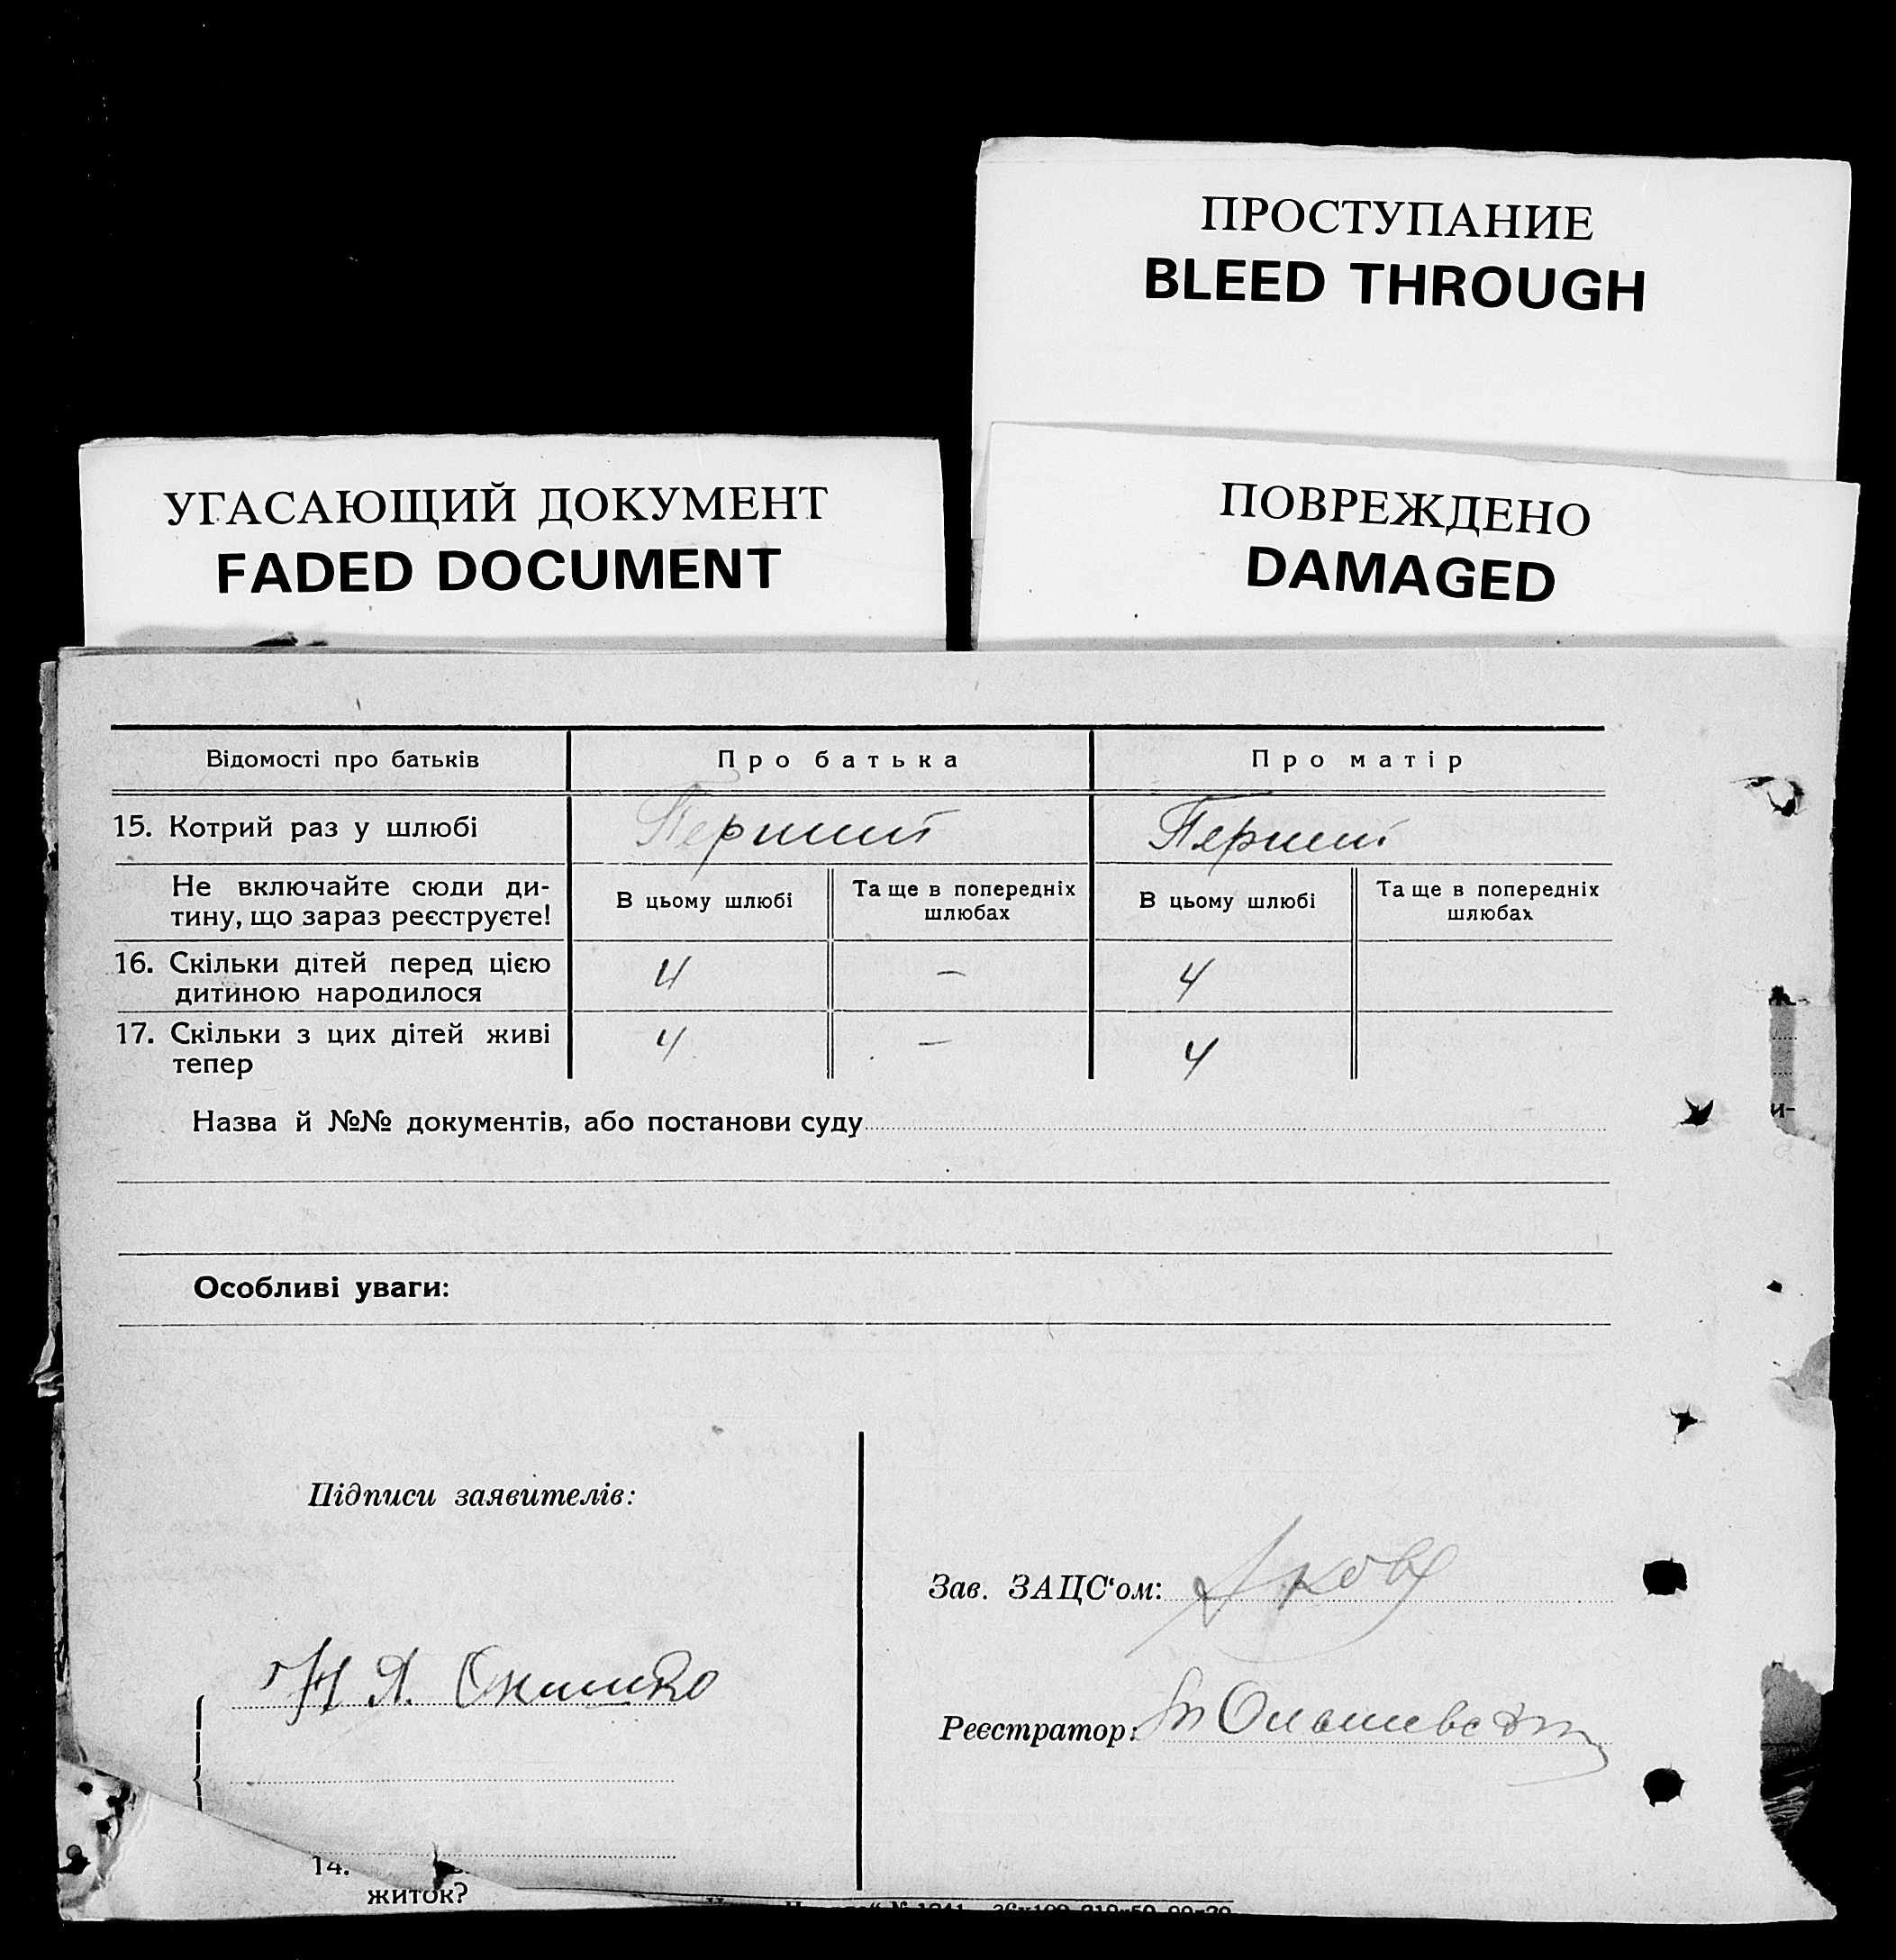 ПРОСТУПАНИЕ
BLEED THROUGH
УГАСАЮЩИЙ ДОКУМЕНТ
FADED DOCUMENT
ПОВРЕЖДЕНО
DAMAGED
Відомості про батьків
Про батька
Про матір
15. Котрий раз у шлюбі
Перший
Перший
Не включайте сюди ди-
тину, що зараз реєструєте!
В цьому шлюбі
Та ще в попередніх
шлюбах
В цьому шлюбі
Та ще в попередніх
шлюбах
16. Скільки дітей перед цією
дитиною народилося
4
—
4
17. Скільки з цих дітей живі
тепер
4
—
4
и-
Назва й №№ документів, або постанови суду
Особливі уваги:
Підписи заявителів:
Зав. ЗАЦС‘ом:
Реєстратор:
14.
житок?